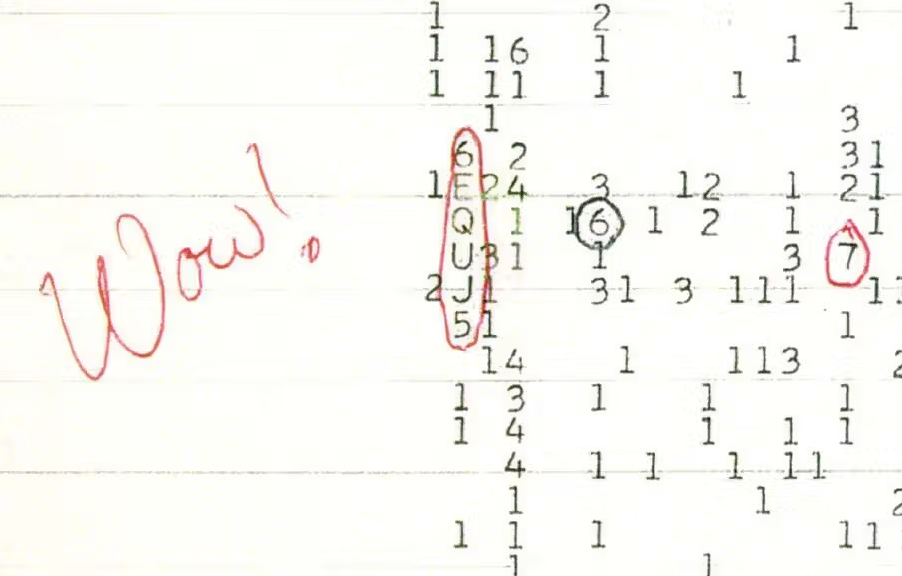 1 2 1
1 16 1 1
1 11 1 1
1 3
6 2 31
1 E24 3 12 1 21
Wow! Q 1 16 1 2 1 1
U31 1 3 7
2J1 31 3 111 11
51 1
14 1 113 2
1 3 1 1 1
1 4 1 1 1
4 1 1 1 11
1 1 2
1 1 1 11
1 1